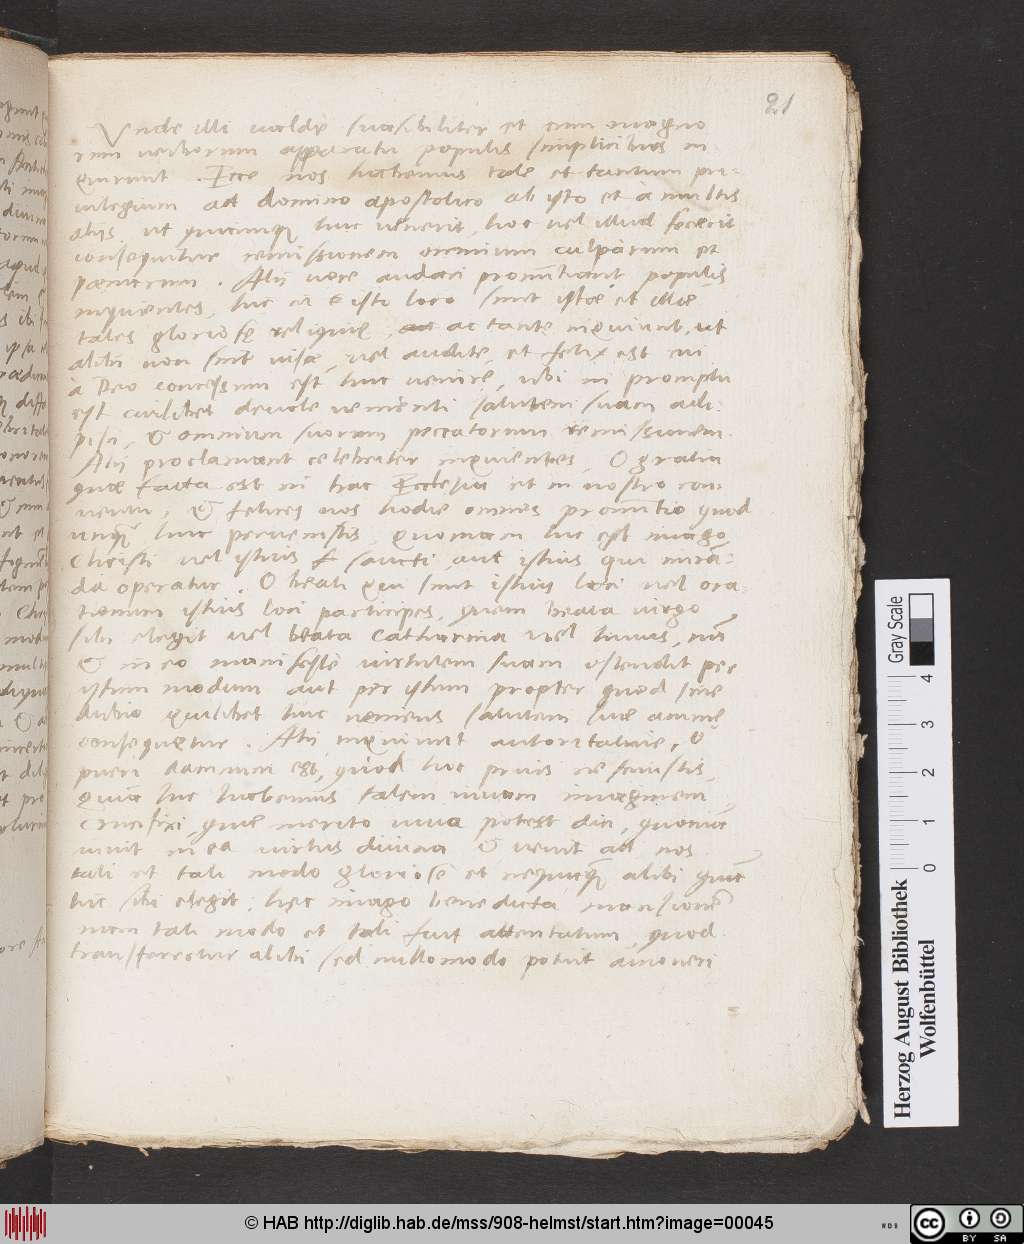 21
Unde illi valde suasibiliter et cum magno
rum verborum apparatu populis simplicibus in
quirunt. Ecce nos habemus tale et tantum pri-
vilegium ad domino apostolico ab isto et à multis
alijs, ut quicunq, huc venerit, hoc vel illud fecerit
consequitur remissionem omnium culparum et
pœnarum. Alij vero audaci pronūtiant, populis
inquientes, hic in isto loco sunt istæ et illæ
tales gloriosę reliquię, ac tantę inquiunt, ut
alibi non sint visæ, vel audite, et felix est cui
à Deo concessum est huc venire, ubi in promptu
est cuilibet devote venienti salutem suam adi-
pisci, & omnium suorum peccatorum remissionem.
Alij proclamant celebriter inquientes, O gratia
quæ facta est in hac Ecclesia et in nostro con-
ventu, O felices vos hodie omnes pronūtio quod
unquā huc pervenistis, quoniam hic est imago
Christi vel istius sancti, aut istius qui mirā-
da operatur. O beati qui sunt istius loci vel ora-
tionum istius loci participes, quem beata virgo
sibi elegit vel beata Catharina vel huius,
& in eo manifestè virtutem suam ostendit per
istum modum aut per istum propter quod sine
dubio quilibet huc veniens salutem suæ animę
consequetur. Alij inquiunt autoritative, O
pueri damnum est, quod hoc prius nescivistis,
quia hic habemus talem vivam imaginem
Crucifixi, quæ merito viva potest dici, quonia
vivit in ea virtus divina & venit ad nos
tali et tali modo gloriosè et nequaquā alibi quā
hic sibi elegit, hęc imago benedicta mansionē
nam tali modo et tali fuit attentatum, quod
transferretur alibi sed nullomodo potuit amoveri
Gray Scale
0 1 2 3 4
Herzog August Bibliothek
Wolfenbüttel
© HAB http://diglib.hab.de/mss/908-helmst/start.htm?image=00045
WDB
cc BY SA